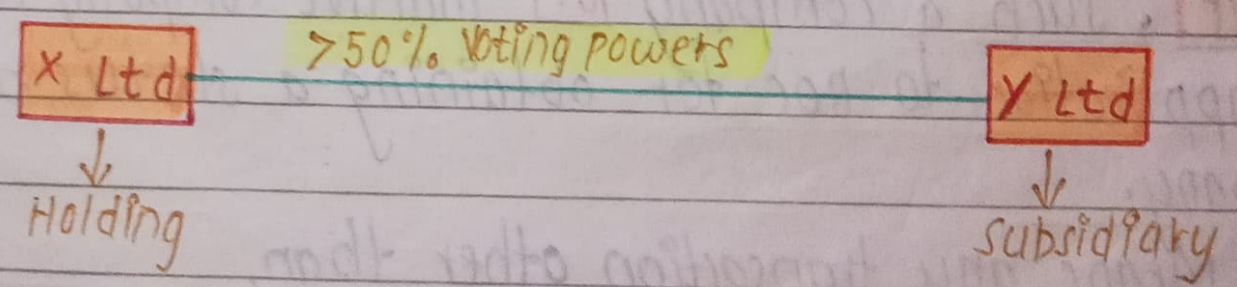 X Ltd >50% Voting powers Y Ltd
Holding subsidiary